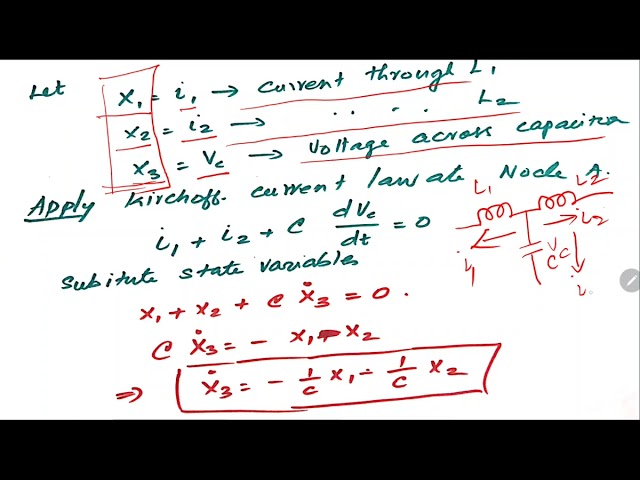 Let x₁ = i₁ → current through L₁
x₂ = i₂ → .. . . L₂
x₃ = Vc → Voltage across capacitor
Apply Kirchoff current law ate Node A.
i₁ + i₂ + C dVc/dt = 0
L₁ L₂
i₁ i₂
Vc
C
i.
subitute state variables
x₁ + x₂ + C ẋ₃ = 0.
C ẋ₃ = - x₁ - x₂
⇒ ẋ₃ = - 1/C x₁ - 1/C x₂